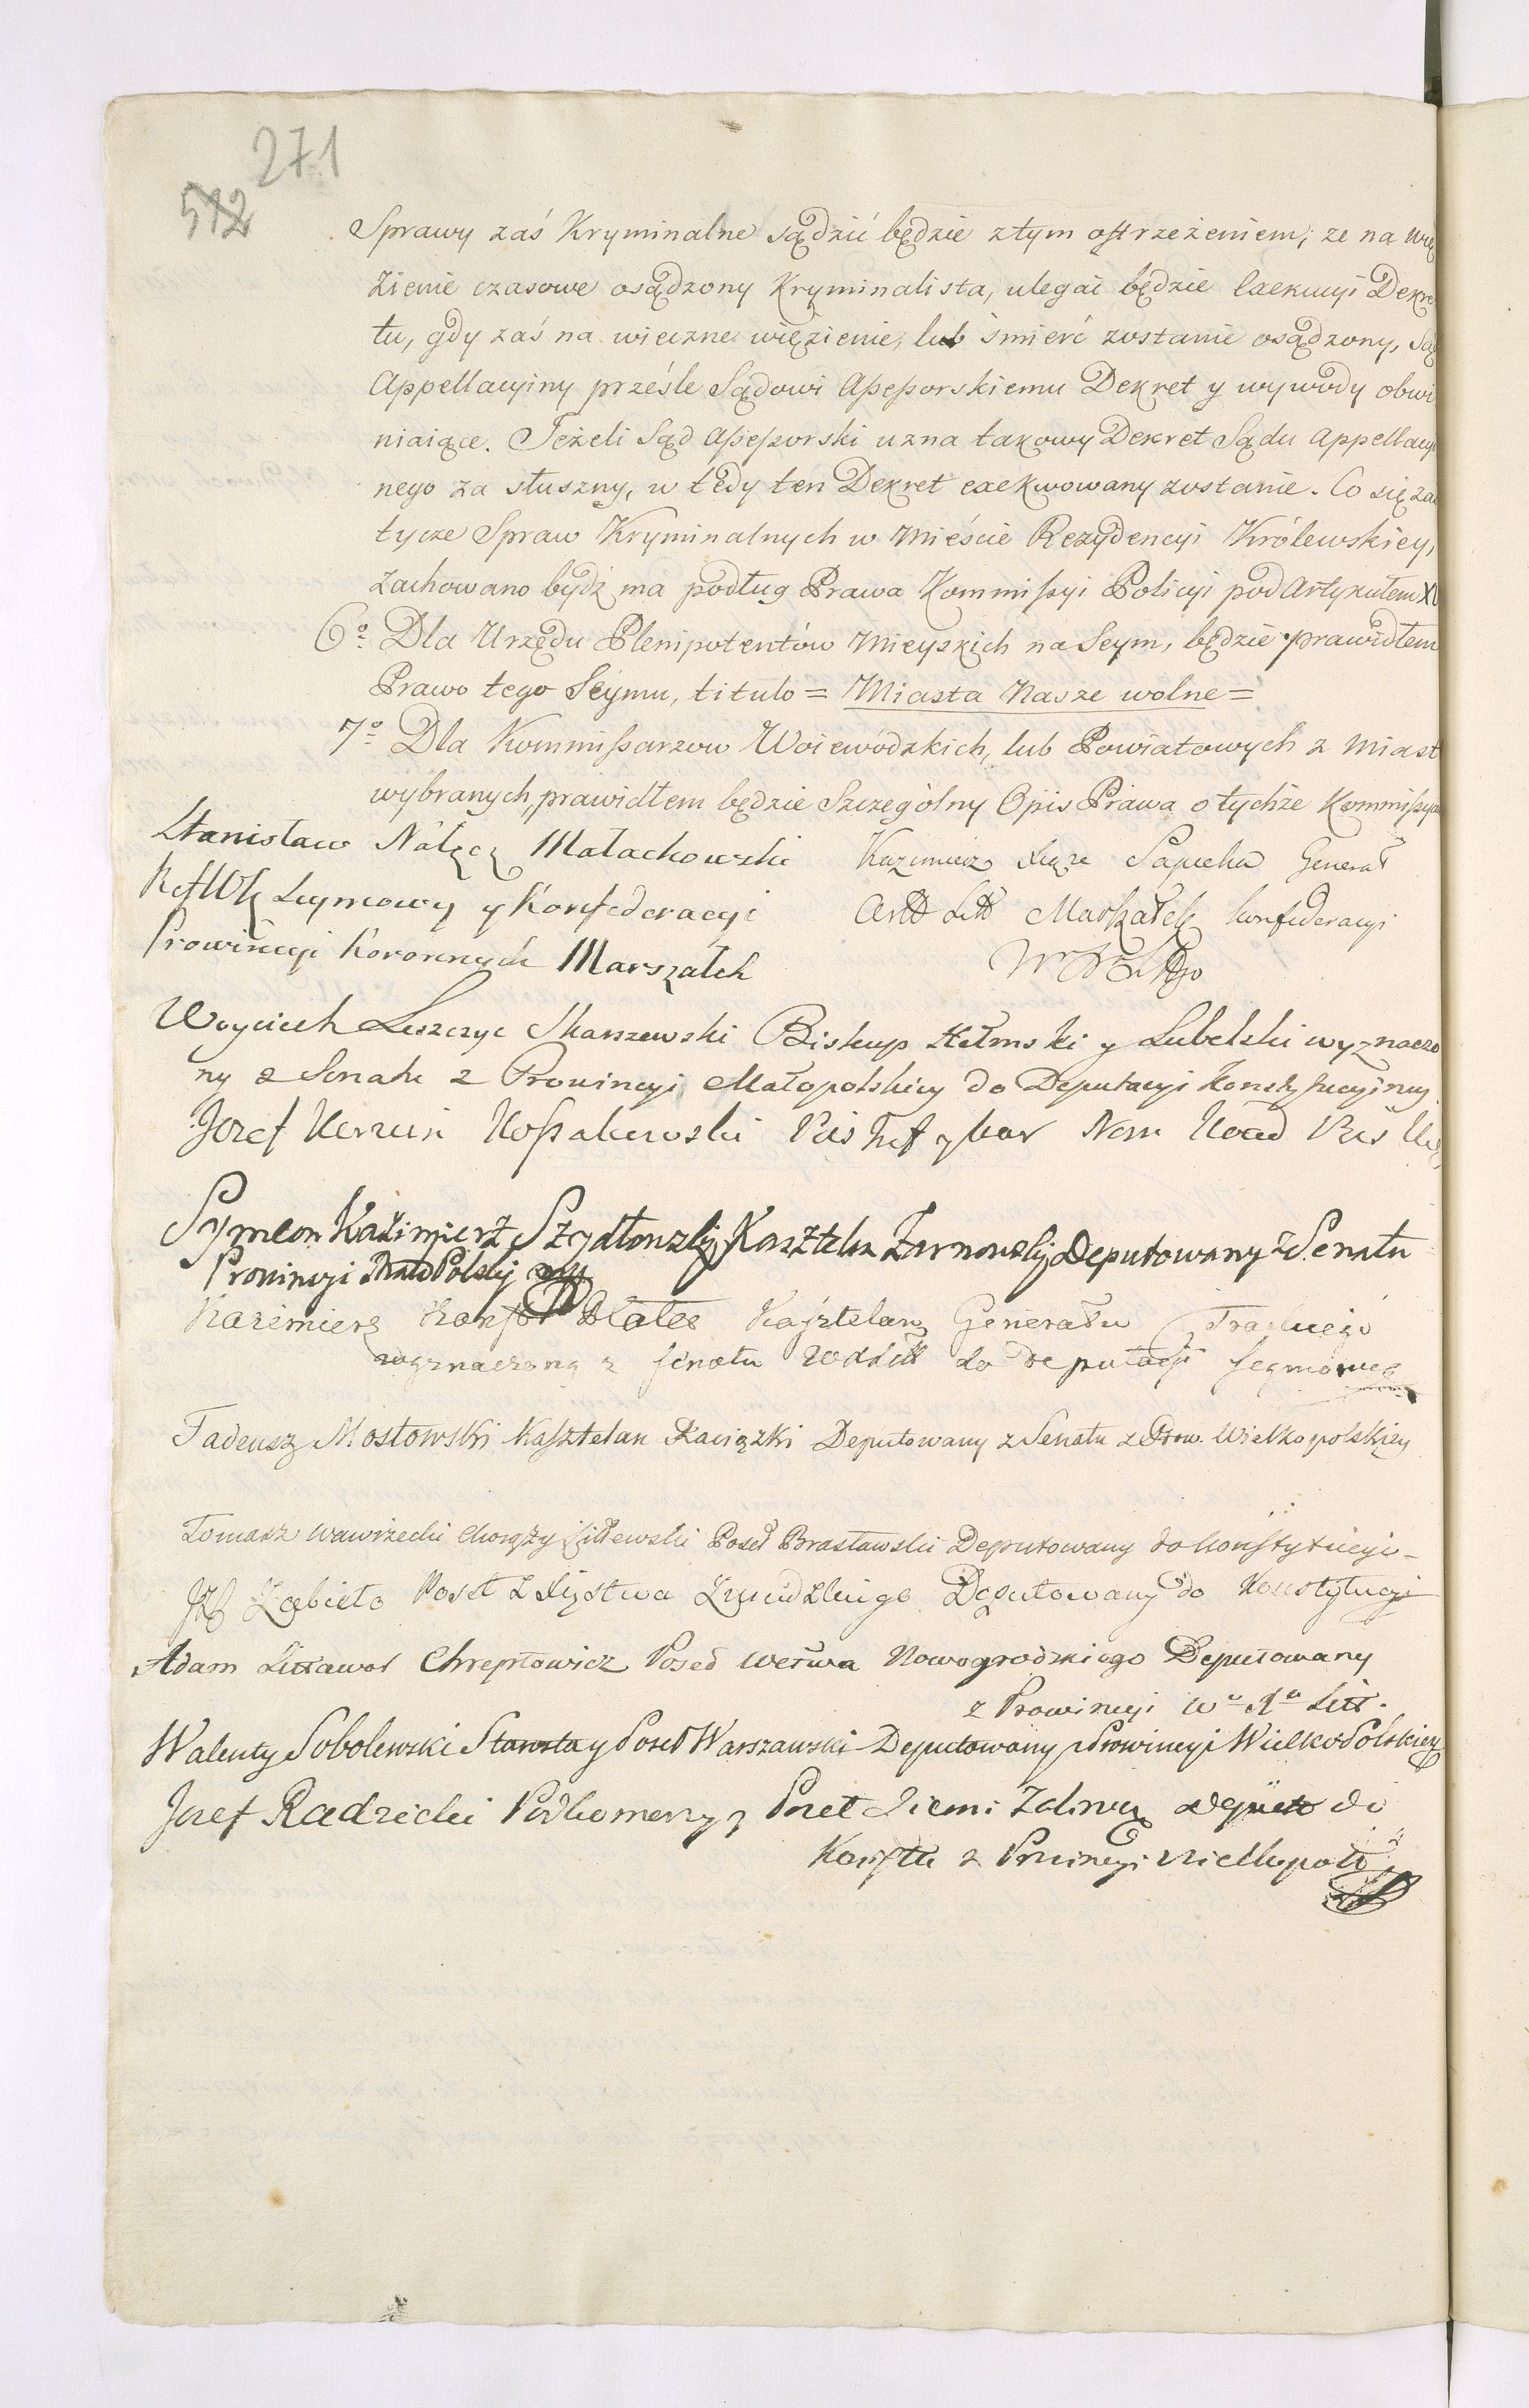 271
512
Sprawy zaś Kryminalne sądzić będzie z tym ostrzeżeniem, że na wię
zienie czasowe osądzony Kryminalista, ulegać będzie Exekucyi Dekre
tu, gdy zaś na wieczne więzienie, lub śmierć zostanie osądzony, Są
Appellacyiny prześle Sądowi Assessorskiemu Dekret y wywody obwi
niaiące. Jeżeli Sąd Assessorski uzna takowy Dekret Sądu Appellacyi
nego za słuszny, w tedy ten Dekret exekwowany zostanie. Co się za
tycze Spraw Kryminalnych w Mieście Rezydencyi Królewskiey,
zachowano bydź ma podług Prawa Kommissyi Policyi pod Artykułem
6o. Dla Urzędu Plenipotentów Mieyskich na Seym, będzie prawidłem
Prawo tego Seymu, titulo = Miasta Nasze wolne =
7o. Dla Kommissarzow Woiewódzkich, lub Powiatowych z Miast
wybranych, prawidłem będzie Szczególny Opis Prawa o tychże Kommissya
Stanisław Nałęcz Małachowski
Ref WK Seymowy y Konfederacyi
Prowincyi Koronnych Marszałek
Kazimierz Xiąże Sapieha Generał
Artt Litt Marszałek Konfederacyi
Woyciech Leszczyc Skarszewski Biskup Hełmski y Lubelski wyznaczo
ny z Senatu z Prowincyi Małopolskiey do Deputacyi Konstytucyiney
Jozef Korwin Kossakowski Bis Inf y Kur Nom Koad Bis
Symeon Kazimierz Szydłowsky Kasztelan Żarnowsky Deputowany z Senatu
Prowincyi MałoPolsky
Kazimierz Konst Plater Kasztelan Generału Trockiego
wyznaczony z senatu do deputacyi seymowey
Tadeusz Mostowski Kasztelan Raciązki Deputowany z Senatu z Prow. Wielkopolskiey
Tomasz Wawrzecki Chorąży Litewski Poseł Brasławski Deputowany do Konstytucyi
Zabiełło Poseł z Xięstwa Żmudzkiego Deputowany do Konstytucyi
Adam Littawor Chreptowicz Poseł Wetwa Nowogrodzkiego Deputowany
z Prowincyi Wo Xa Litt.
Walenty Sobolewski Starosta y Poseł Warszawski Deputowany z Prowincyi WielkoPolskiey
Jozef Radzicki Podkomorzy y Poseł Ziemi Zakrocz do
Konsttu z Prowincyi Wielkopols